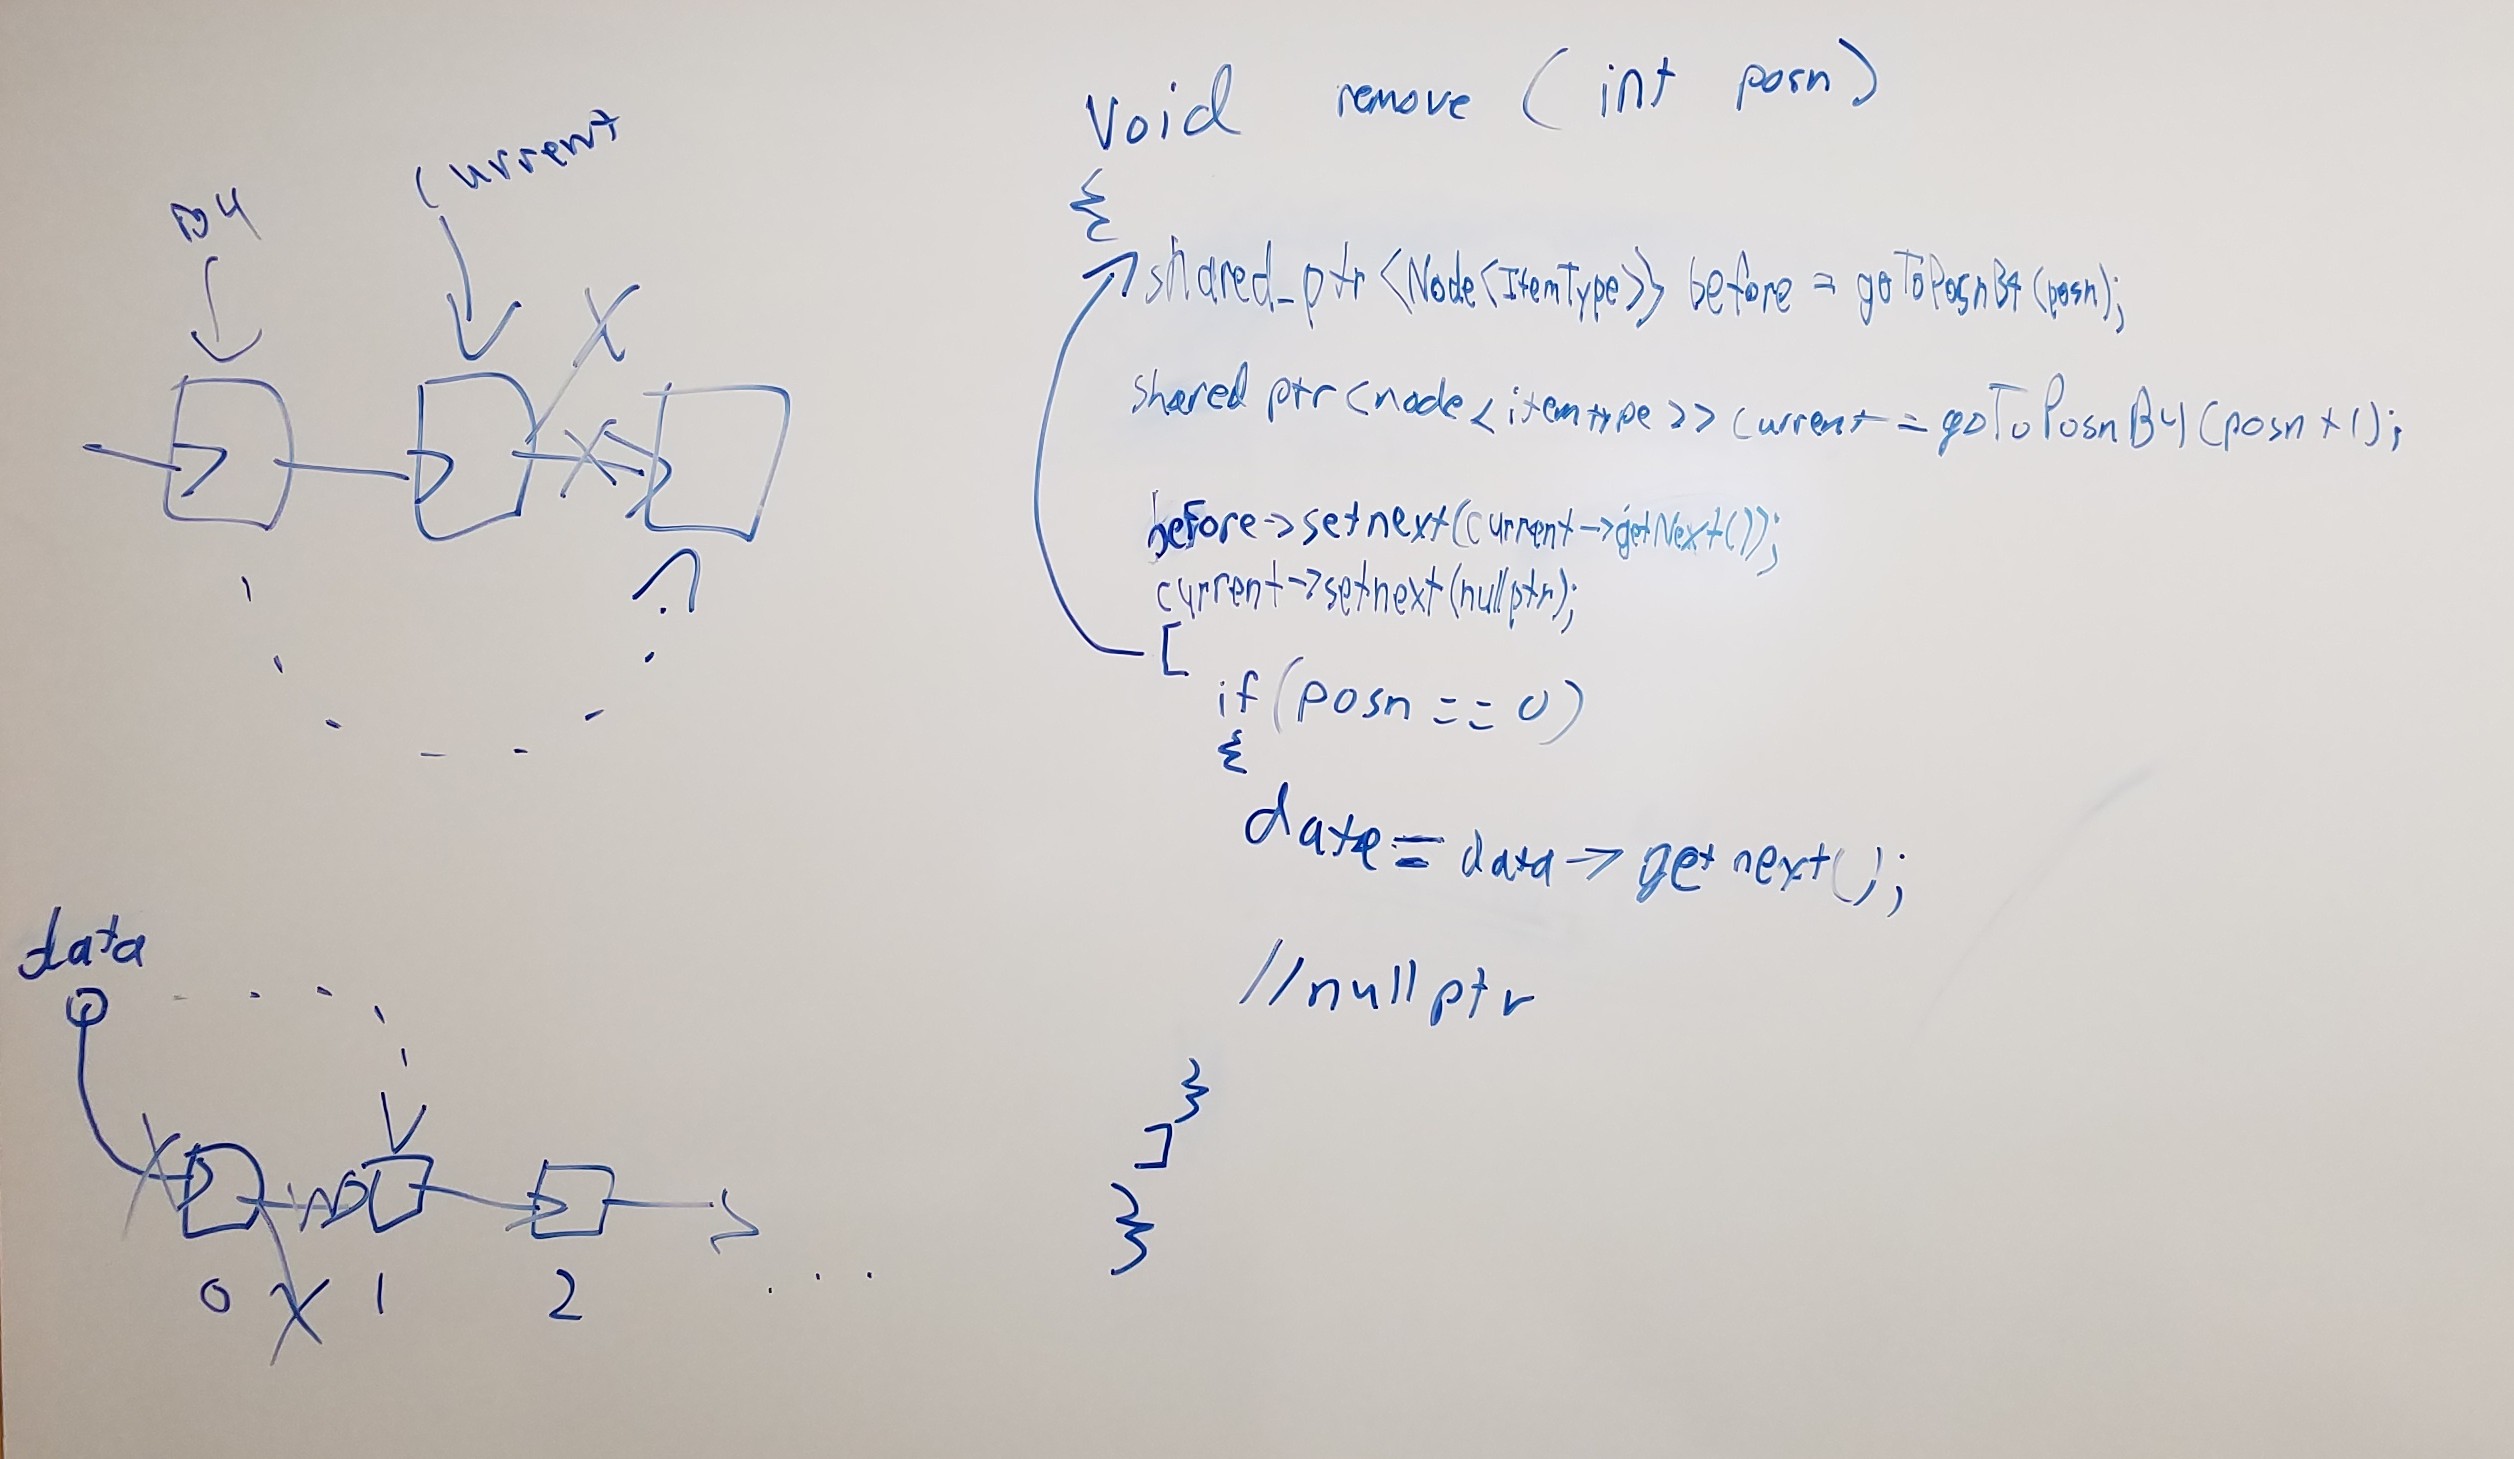 B4
current
data
0 1 2 ...
void remove (int posn)
{
shared_ptr<Node<ItemType>> before = goToPosnB4(posn);
shared ptr<node<itemtype>> current = goToPosnB4(posn+1);
before->setnext(current->getNext());
current->setnext(nullptr);
[
if(posn == 0)
{
date = data->getnext();
//nullptr
}
]
}